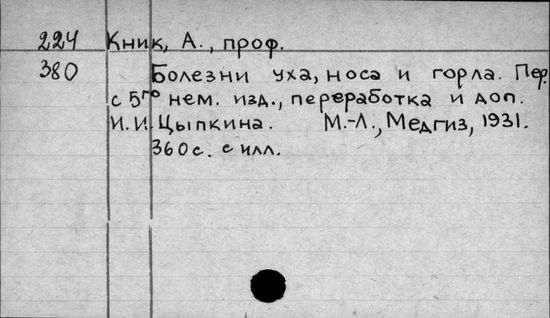 224 Кник, А., проф.
380 Болезни уха, носа и горла. Пер.
с 5го нем. изд., переработка и доп.
И. И. Цыпкина. М.-Л., Медгиз, 1931.
360 с. с илл.